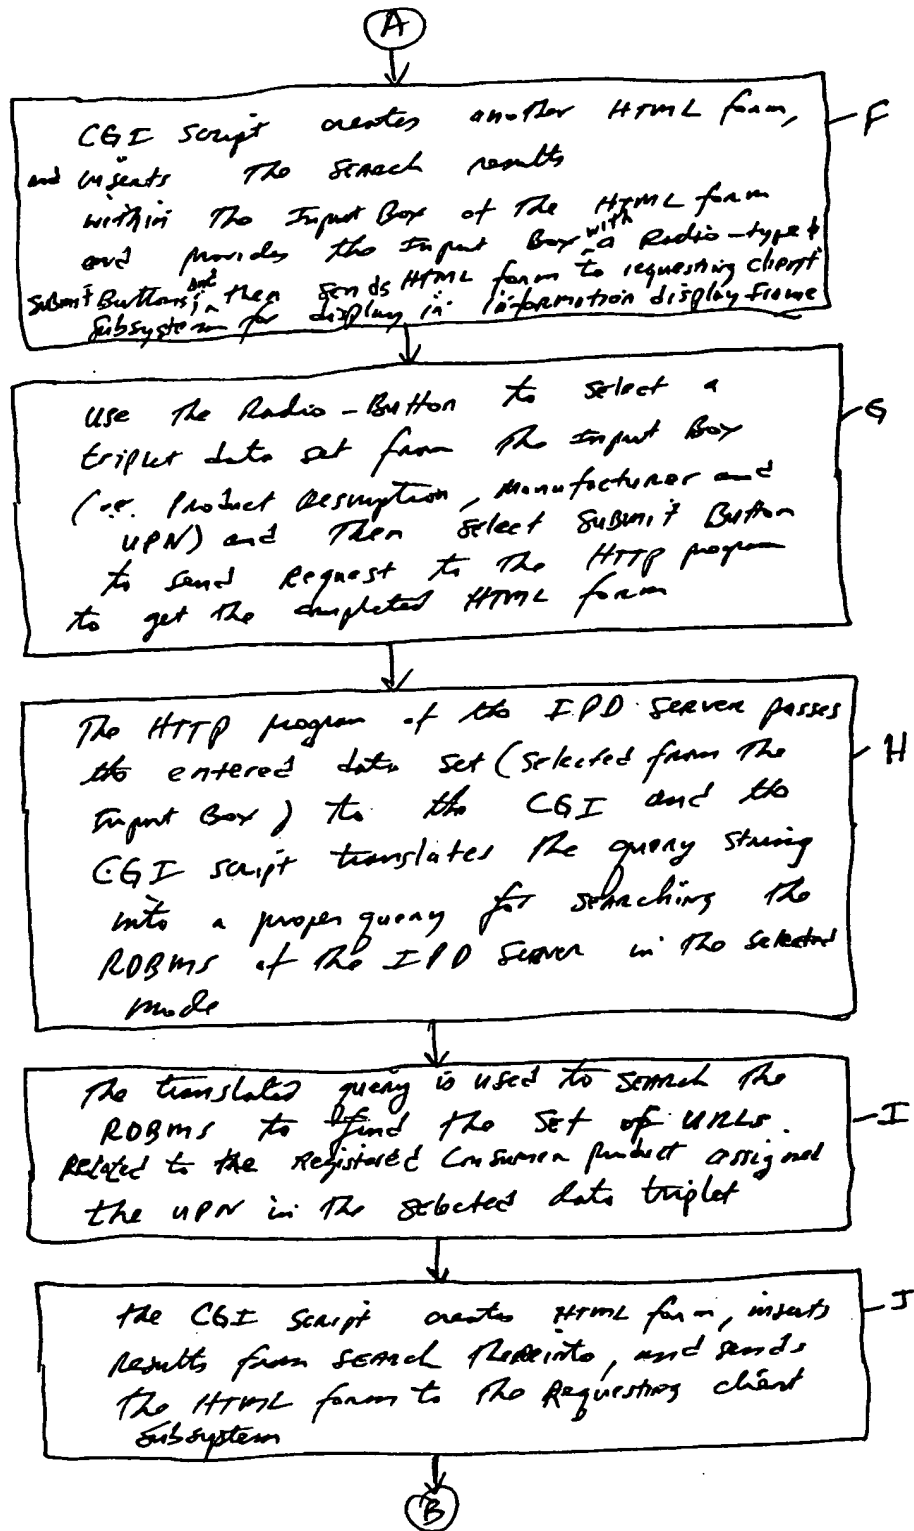 A
CGI Script creates another HTML form, F
and inserts the search results
within the Input Box of the HTML form
and provides the Input Box with a Radio-type &
Submit Buttons; and then sends HTML form to requesting client
Subsystem for display in information display frame
Use the Radio-Button to select a G
triplet data set from the Input Box
(i.e. Product Description, Manufacturer and
UPN) and Then select Submit Button
to send Request to the HTTP program
to get the completed HTML form
The HTTP program of the IPD Server passes
the entered data set (selected from the H
Input Box) to the CGI and the
CGI script translates the query string
into a proper query for searching the
RDBMS of the IPD Server in the selected
mode
The translated query is used to search the
RDBMS to find the set of URLs I
Related to the registered Consumer product assigned
the UPN in the selected data triplet
the CGI Script creates HTML form, inserts J
Results from search thereinto, and sends
the HTML form to the Requesting client
Subsystem
B